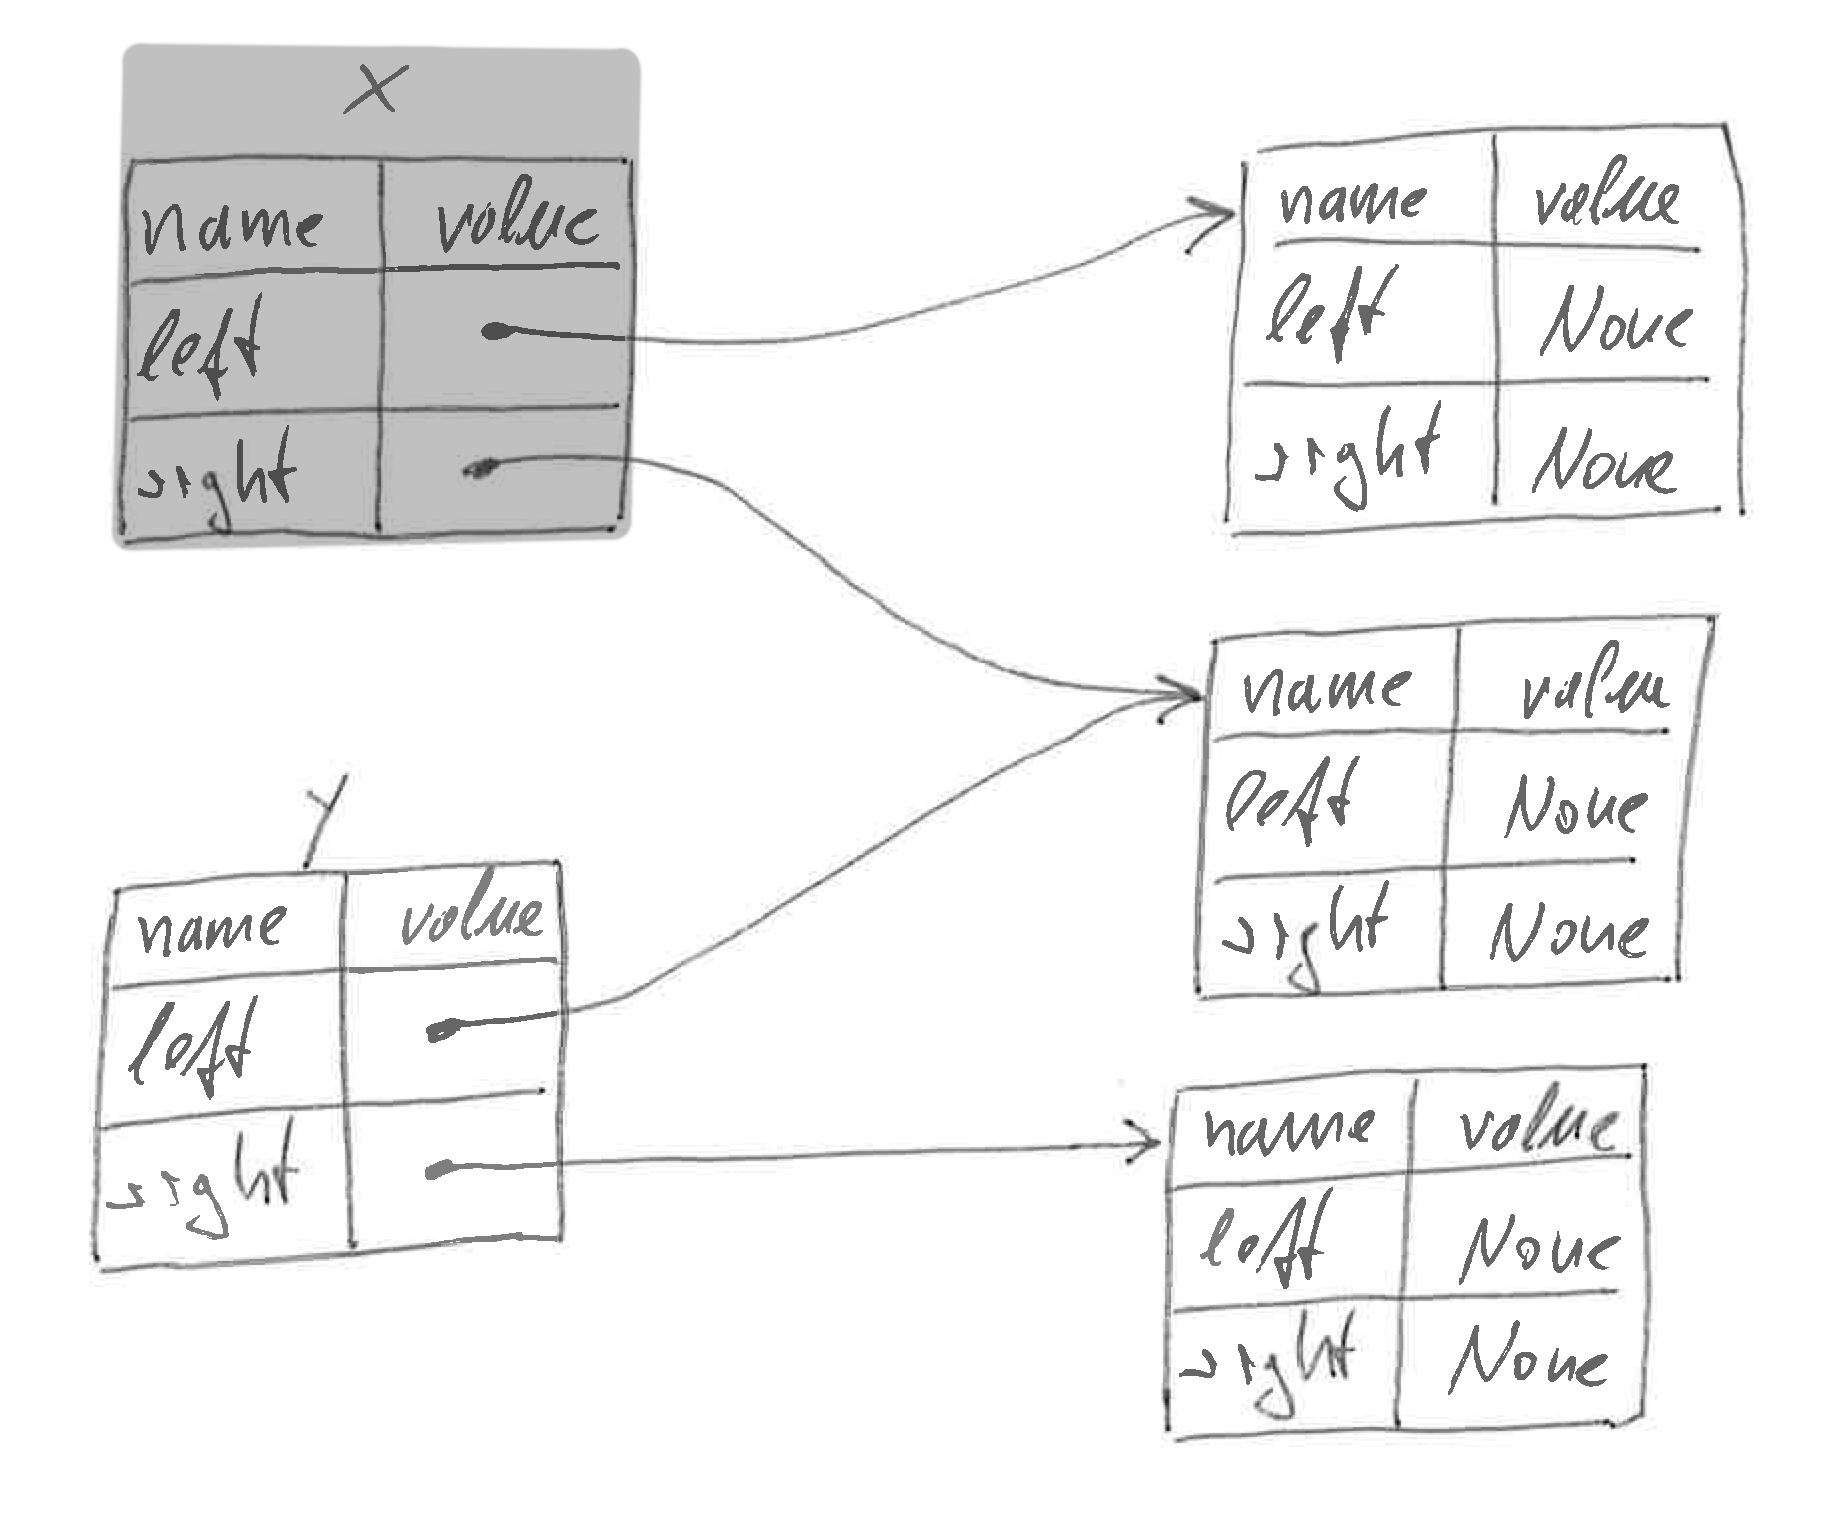 X
name value
left
right
name value
left None
right None
name value
left None
right None
Y
name value
left
right
name value
left None
right None